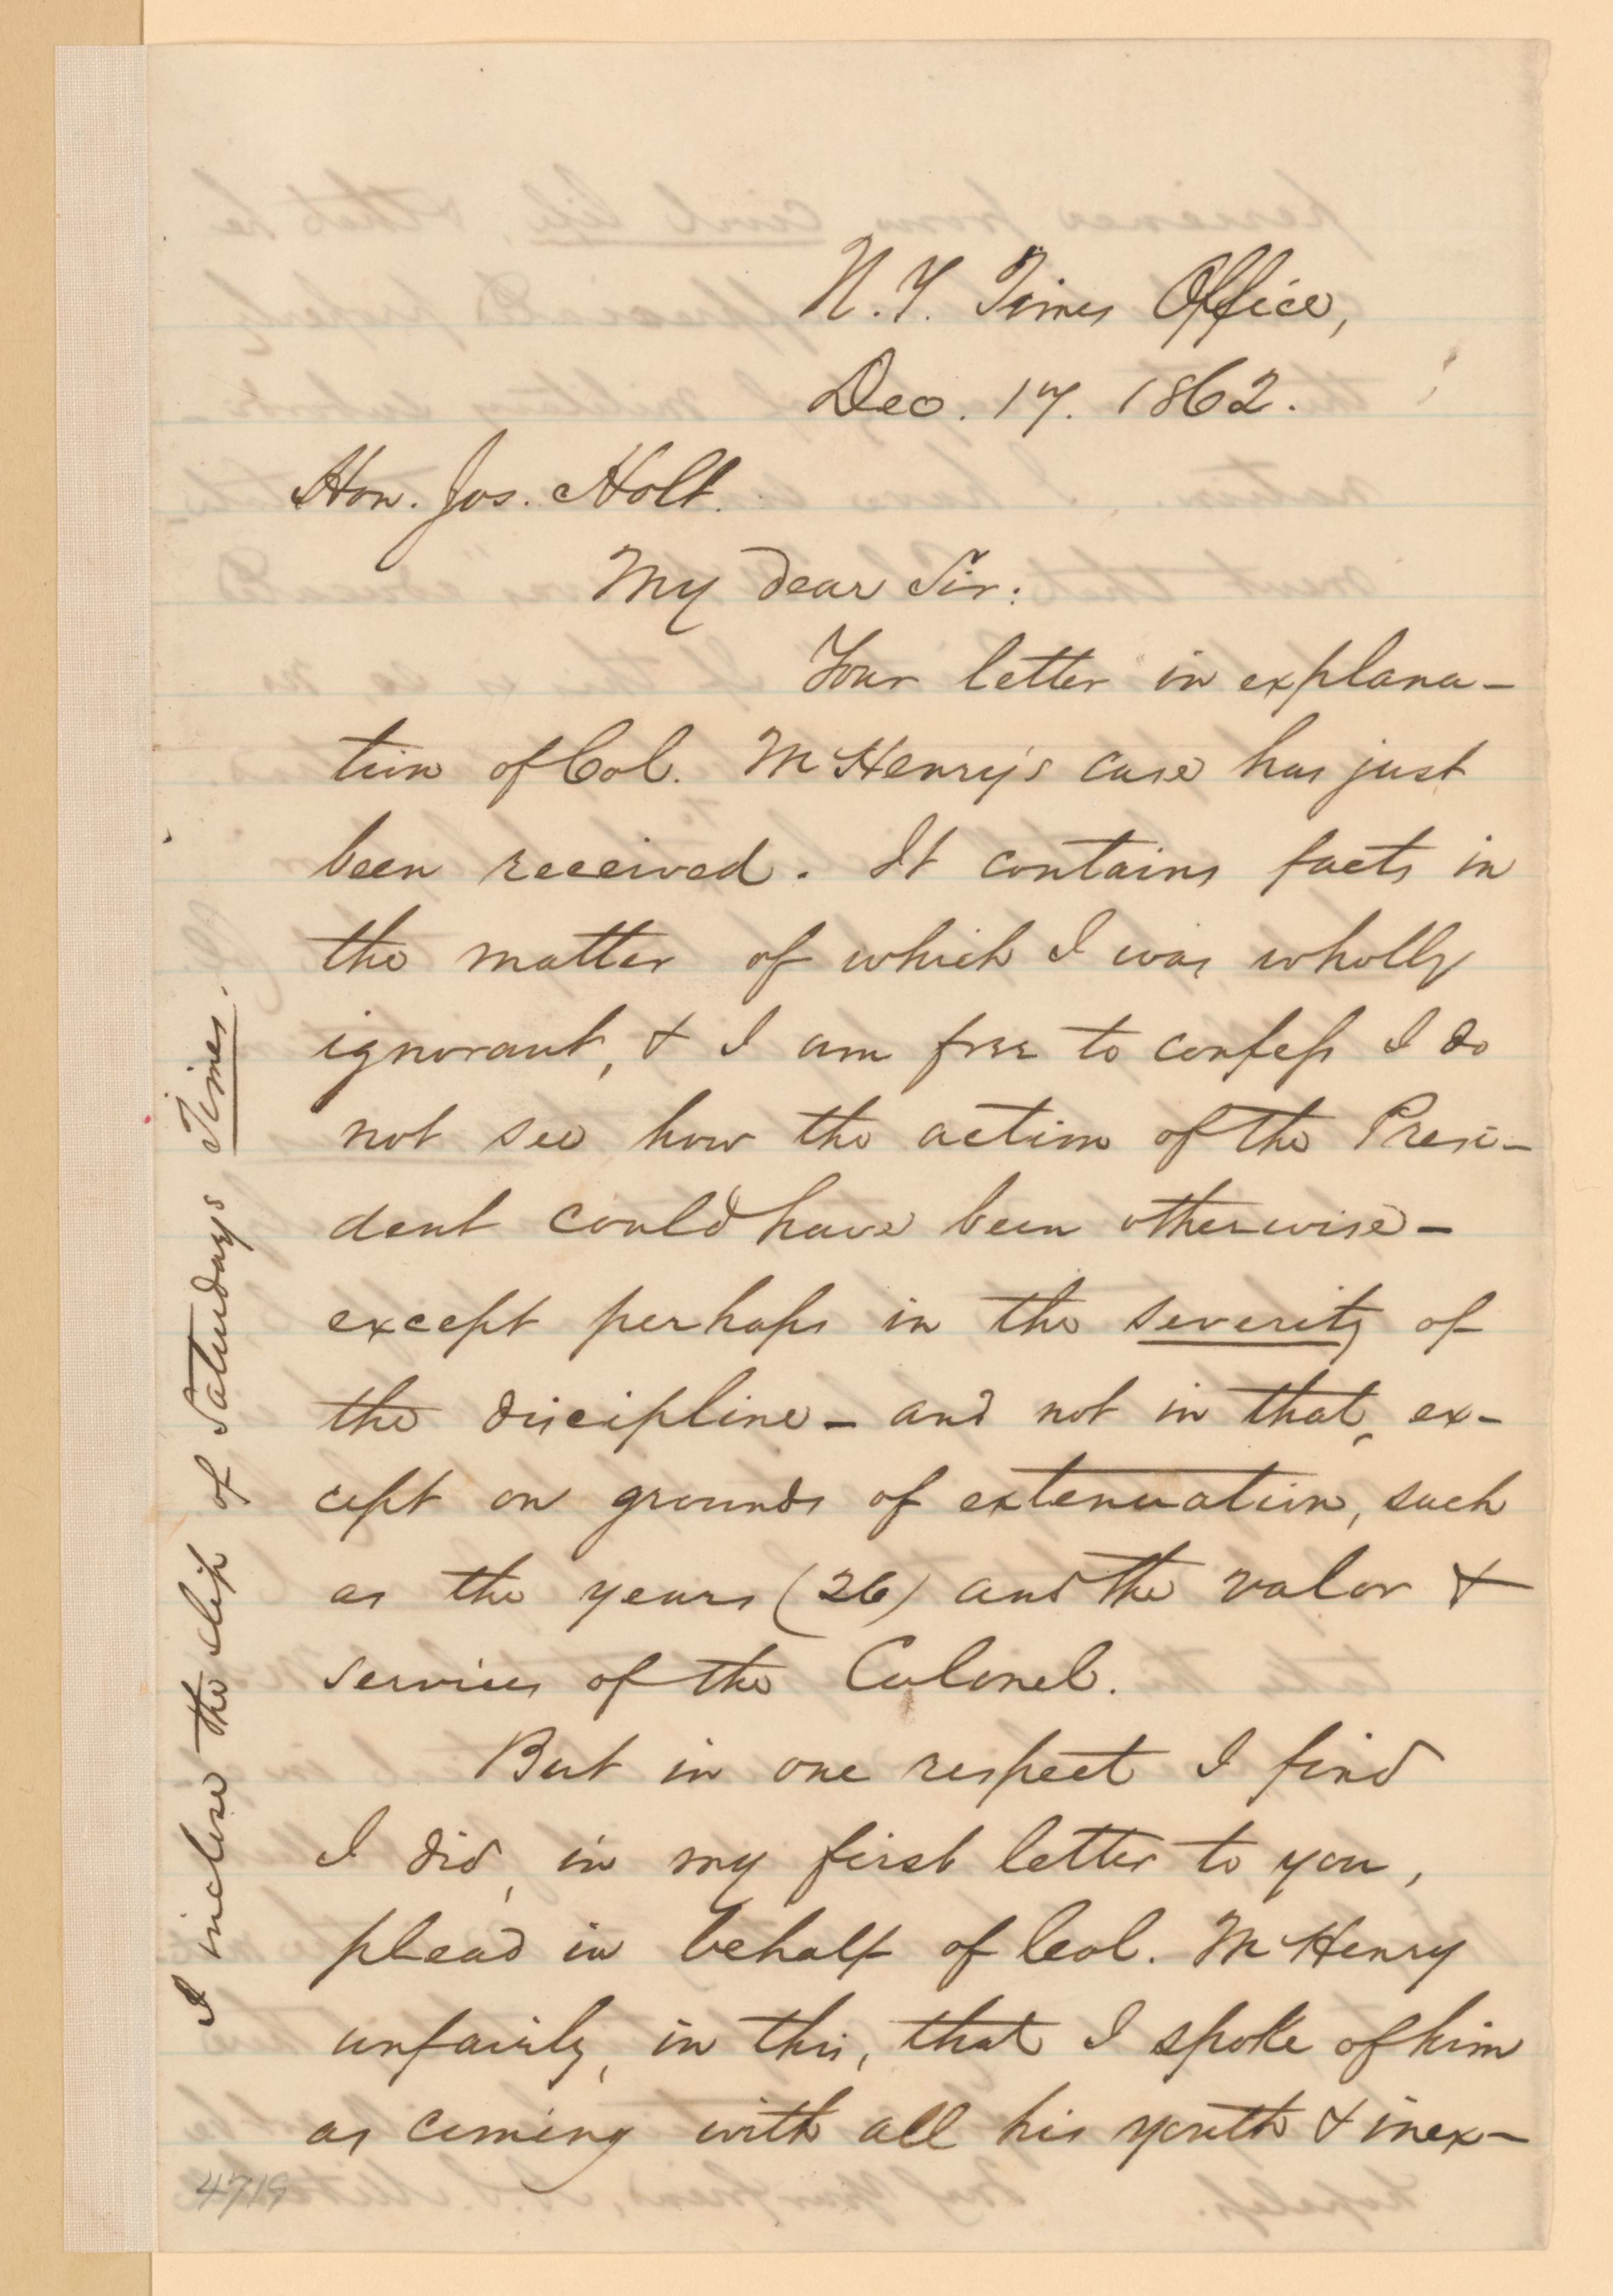 N. Y. Times Office,
Dec. 17. 1862.
Hon. Jos. Holt.
My dear Sir:
Your letter in explana-
tion of Col. McHenry's case has just
been received. It contains facts in
the matter of which I was wholly
ignorant, & I am free to confess I do
not see how the action of the Presi-
dent could have been otherwise -
except perhaps in the severity of
the discipline - and not in that, ex-
cept on grounds of extenuation, such
as the years (26) and the valor &
services of the Colonel.
But in one respect I find
I did, in my first letter to you,
plead in behalf of Col. McHenry
unfairly, in this, that I spoke of him
as coming with all his youth & inex-
I inclose the slip of Saturdays Times.
4719